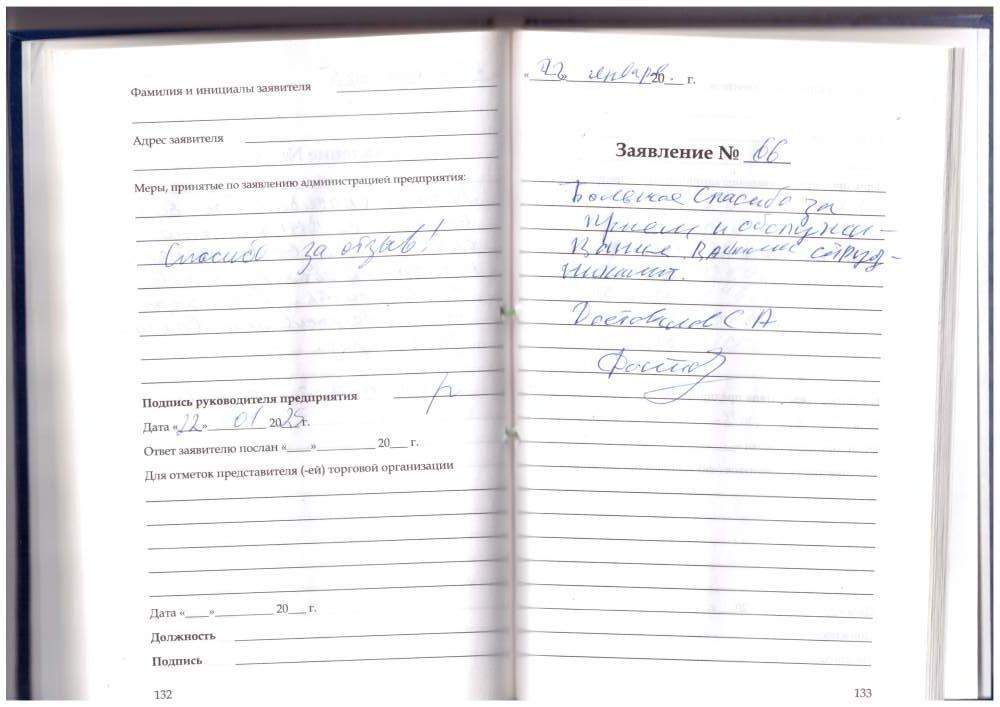 Фамилия и инициалы заявителя
Адрес заявителя
Меры, принятые по заявлению администрацией предприятия:
Спасибо за отзыв!
Подпись руководителя предприятия
Дата «22» 01 2025 г.
Ответ заявителю послан «____»__________ 20___ г.
Для отметок представителя (-ей) торговой организации
Дата «____»__________ 20___ г.
Должность
Подпись
132
«22 января 20 г.
Заявление № 66
Большое Спасибо за
прием и обслужи-
вание вашими сотруд-
никами.
С.А
133